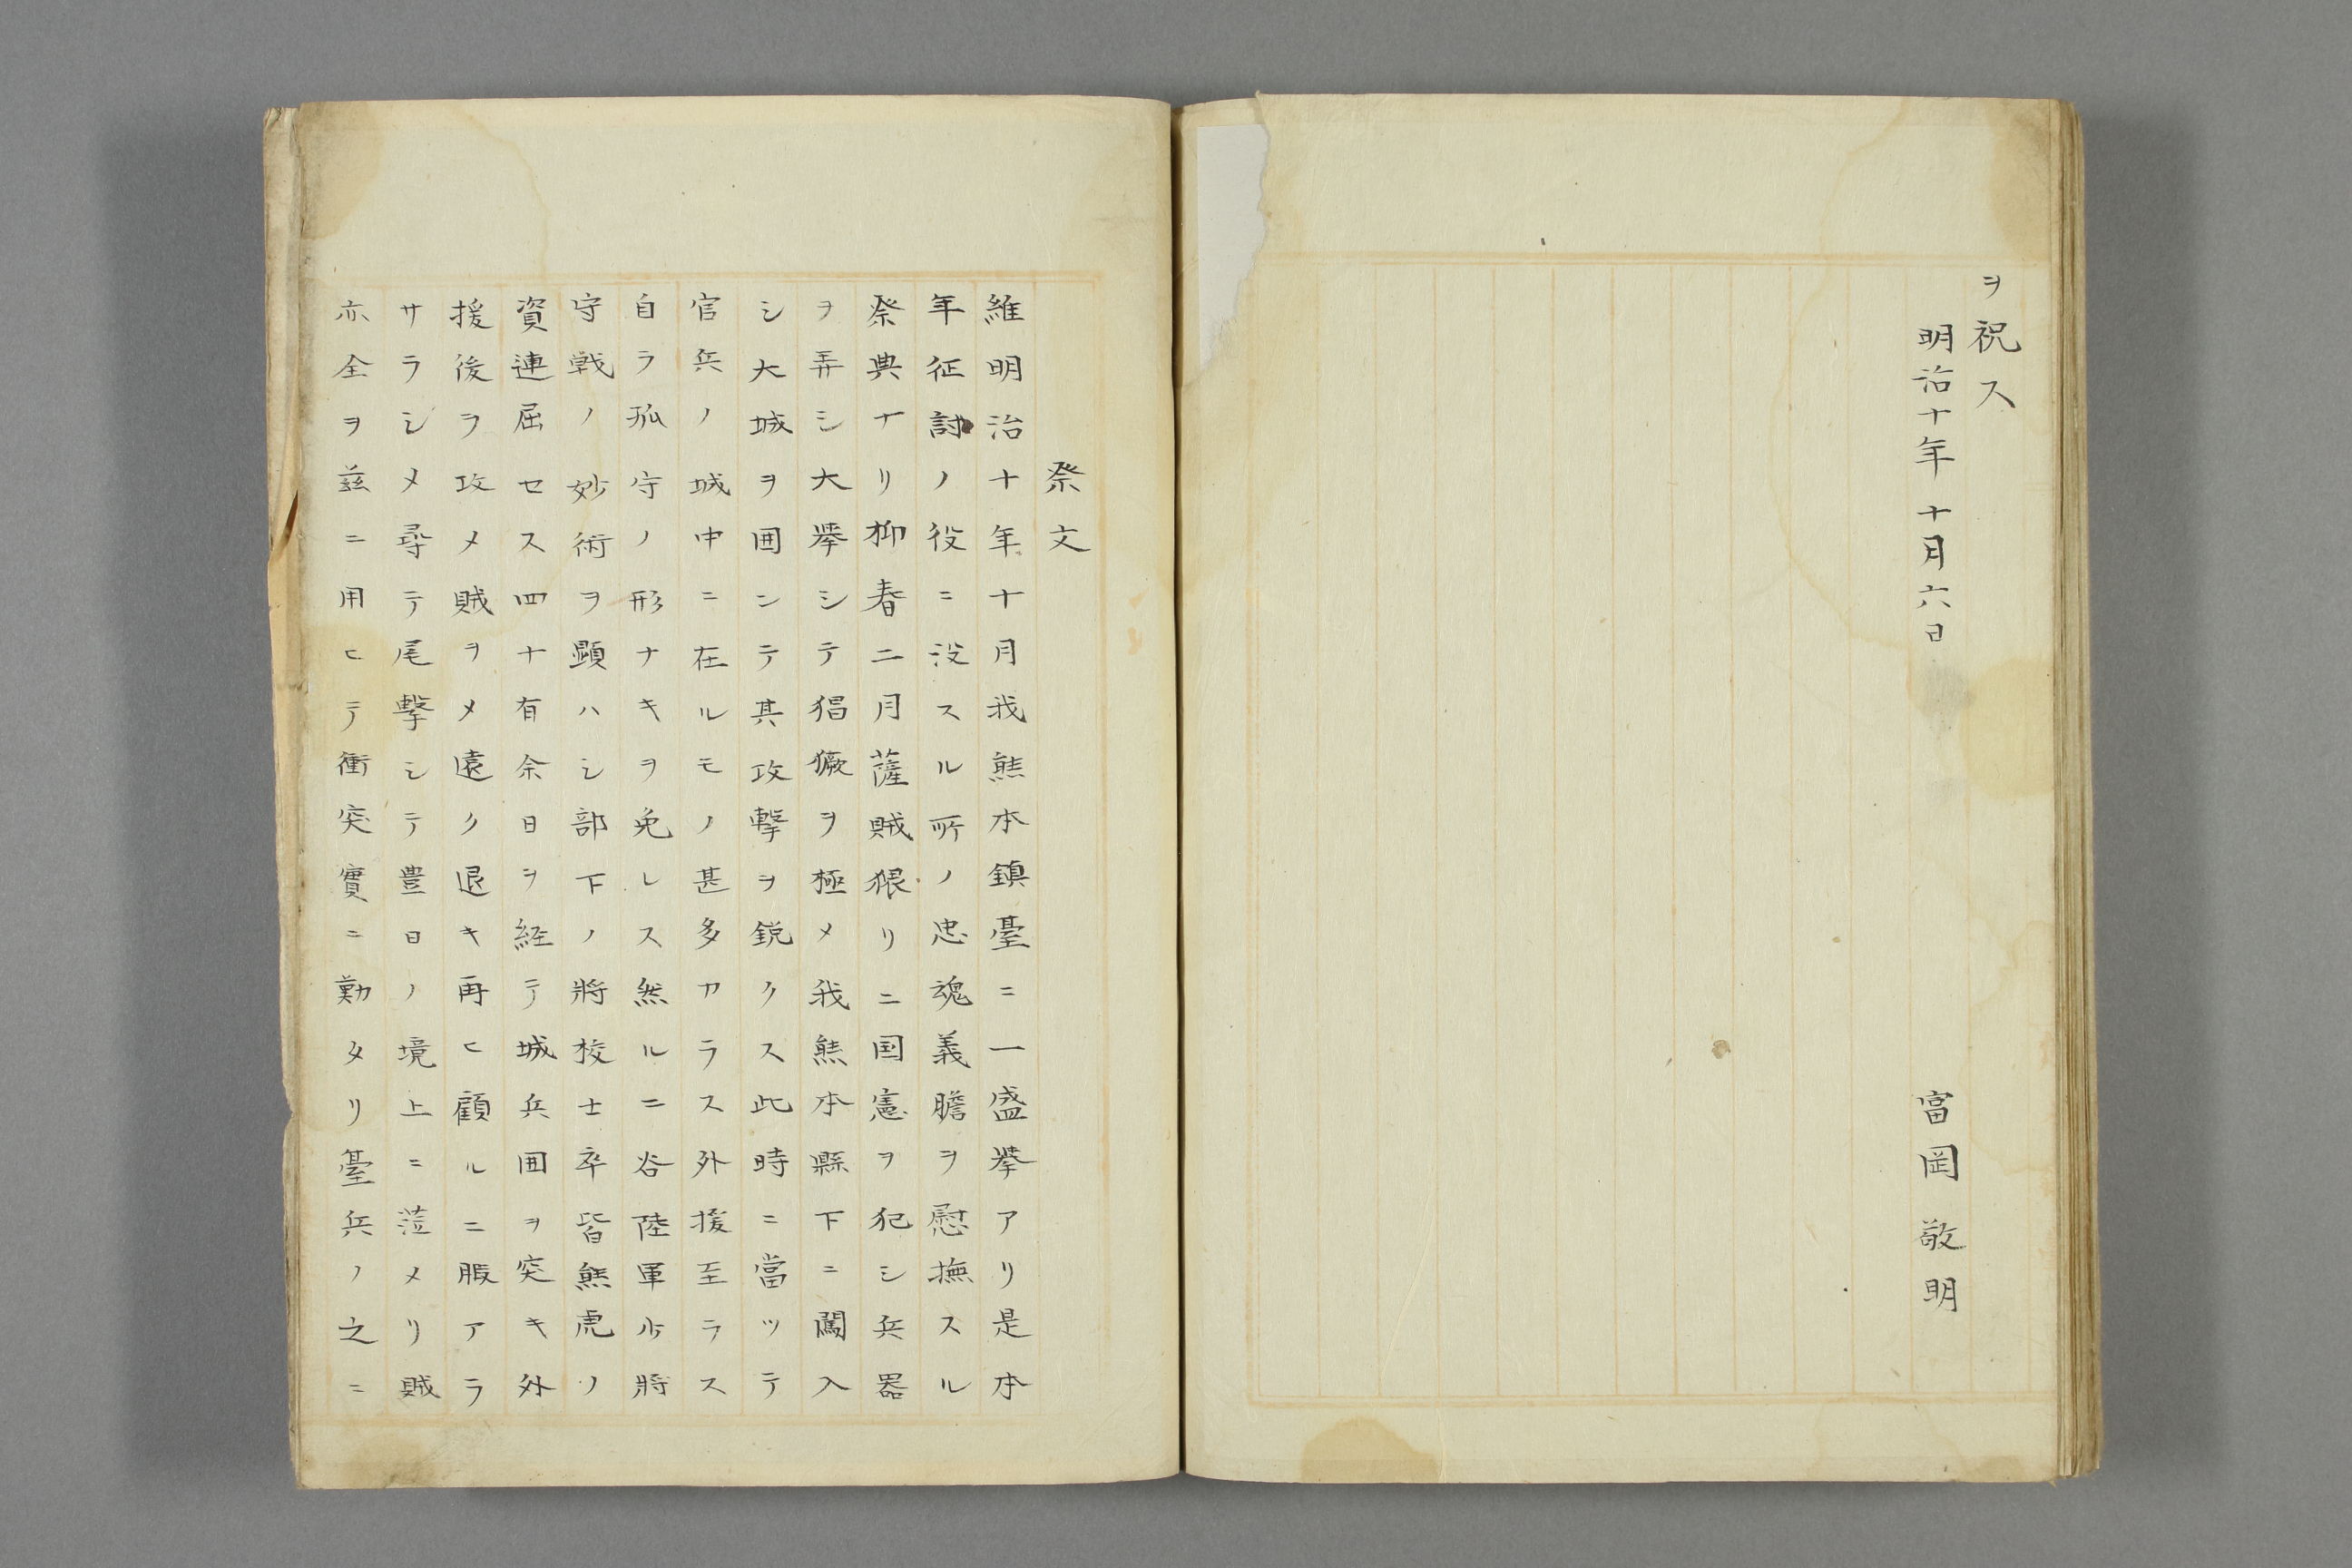 ヲ祝ス
明治十年十月六日　富岡敬明
祭文
維明治十年十月我熊本鎮臺ニ一盛挙アリ是本
年征討ノ役ニ没スル所ノ忠魂義膽ヲ慰撫スル
祭典ナリ抑春二月薩賊猥リニ国憲ヲ犯シ兵器
ヲ弄シ大挙シテ猖獗ヲ極メ我熊本縣下ニ闖入
シ大城ヲ囲ンテ其攻撃ヲ鋭クス此時ニ當ツテ
官兵ノ城中ニ在ルモノ甚多カラス外援至ラス
自ラ孤守ノ形ナキヲ免レス然ルニ谷陸軍少将
守戦ノ妙術ヲ顕ハシ部下ノ將校士卒皆熊虎ノ
資連屈セス四十有余日ヲ経テ城兵囲ヲ突キ外
援後ヲ攻メ賊ヲメ遠ク退キ再ヒ顧ルニ暇アラ
サラシメ尋テ尾撃シテ豊日ノ境上ニ蒞メリ賊
亦全ヲ茲ニ用ヒテ衝突實ニ勤タリ臺兵ノ之ニ